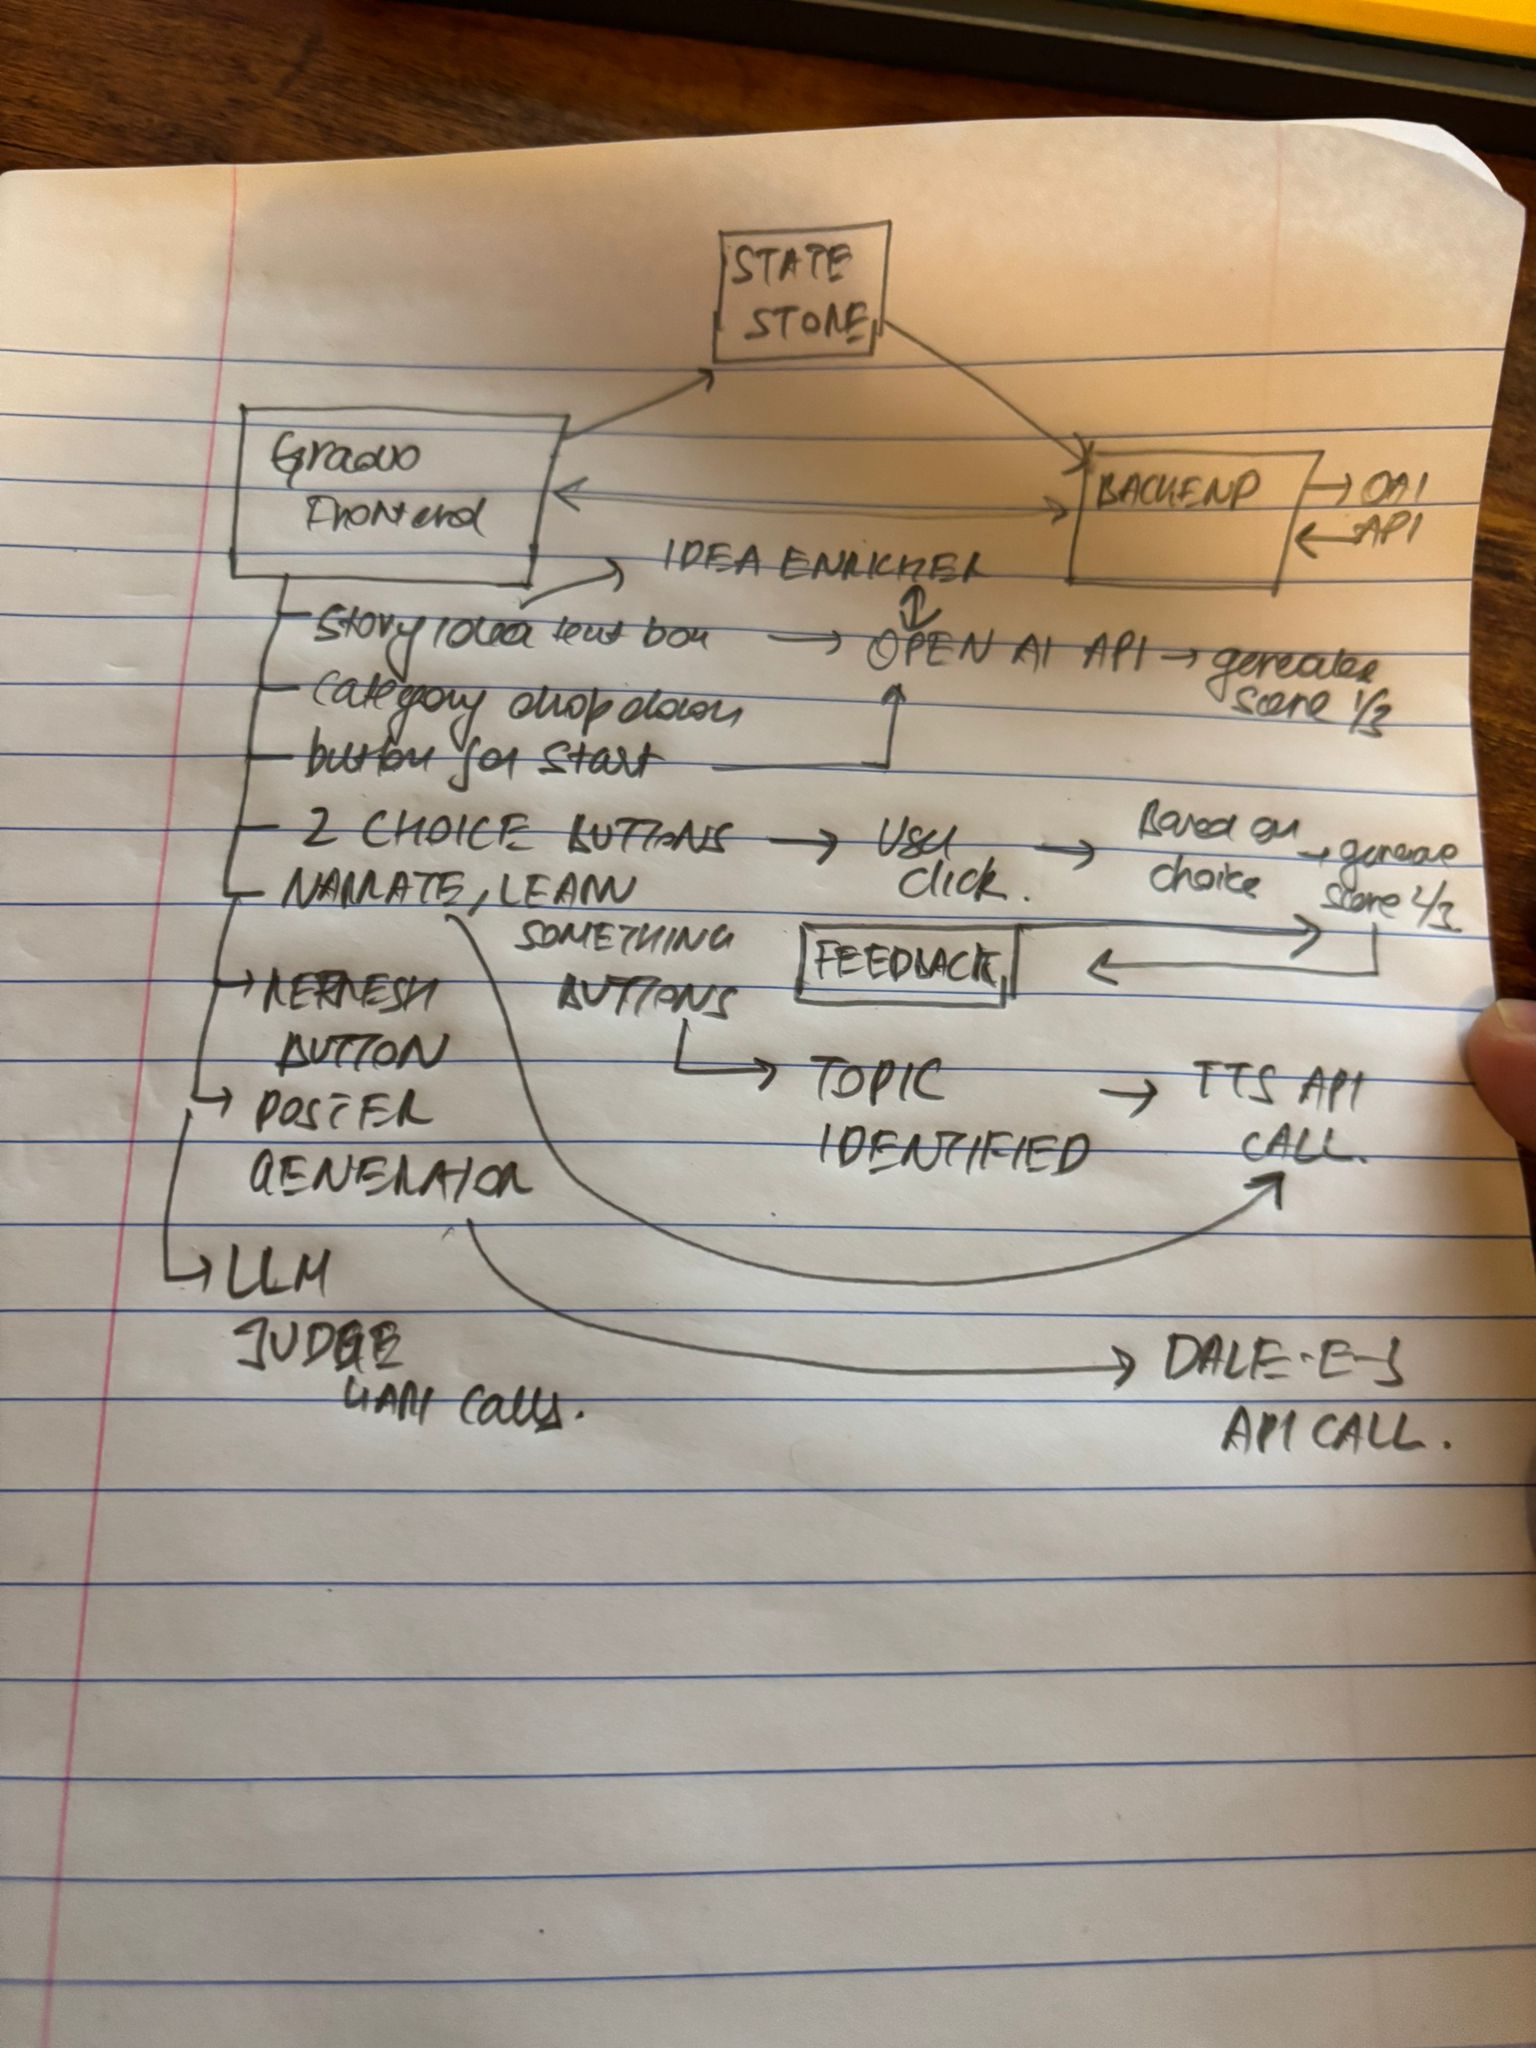 STATE
STORE
Gradio
Frontend
BACKEND → OAI
← API
IDEA ENRICHER
Story idea text box → OPEN AI API → generates
score 1/3
category dropdown
button for Start
2 CHOICE BUTTONS → User
click. → Based on
choice → generate
score 2/3
NARRATE, LEARN
SOMETHING
BUTTONS
FEEDBACK
REFRESH
BUTTON
TOPIC
IDENTIFIED → TTS API
CALL.
POSTER
GENERATOR
LLM
JUDGE
4 API calls.
DALE-E-3
API CALL.